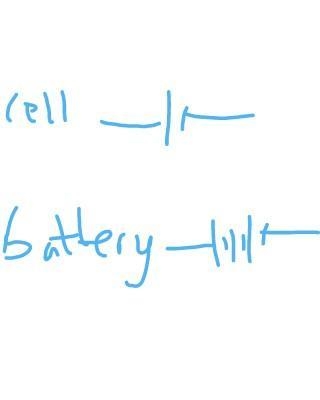 cell
battery